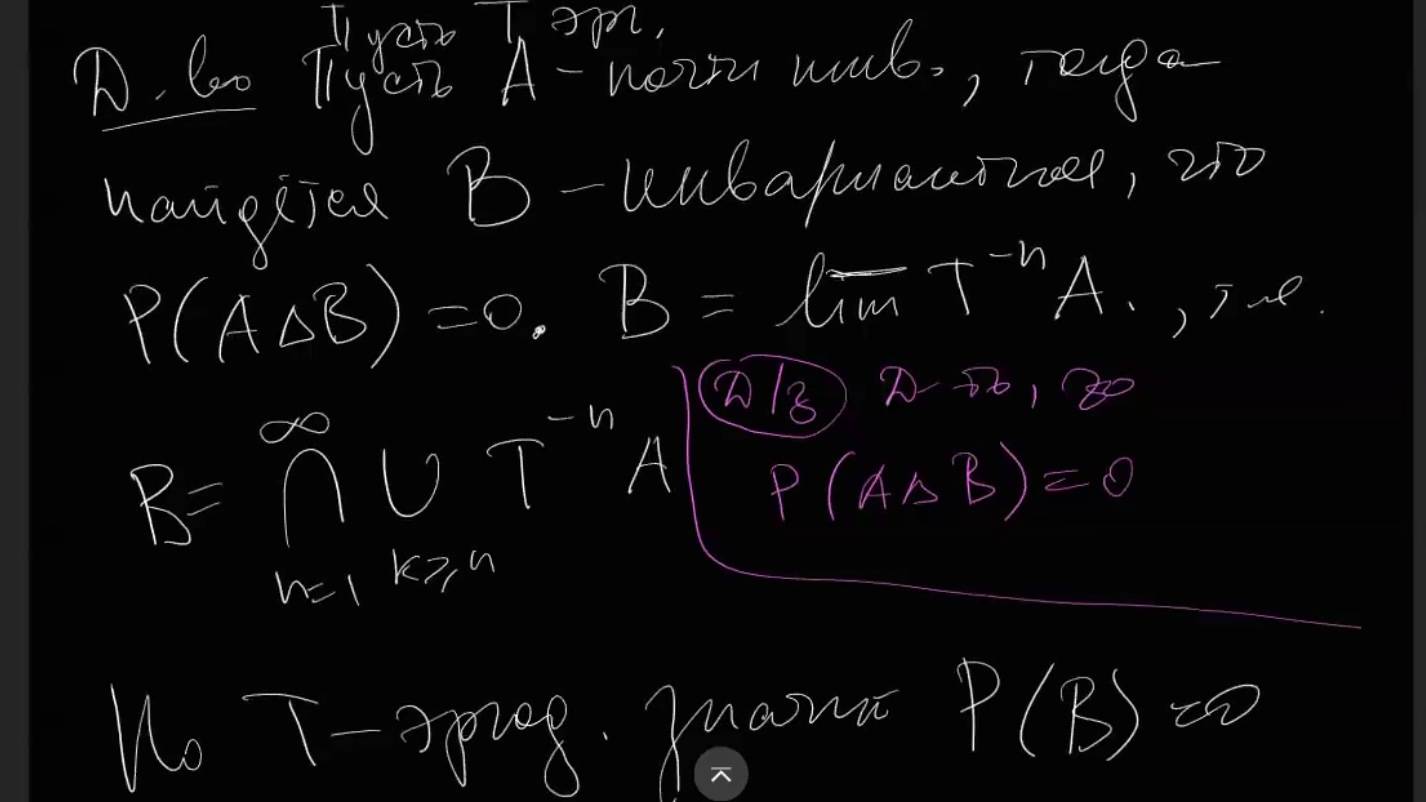 Пусть T эрг.
Д-во Пусть A – почти инв., тогда
найдётся B – инвариантное, что
P(A△B)=0. B = \overline{lim} T^{-n} A., т.е.
B = ∩_{n=1}^{∞} ∪_{k≥n} T^{-n} A
Д/з Д-ть, что
P(A△B)=0
Но T – эргод. значит P(B)=0